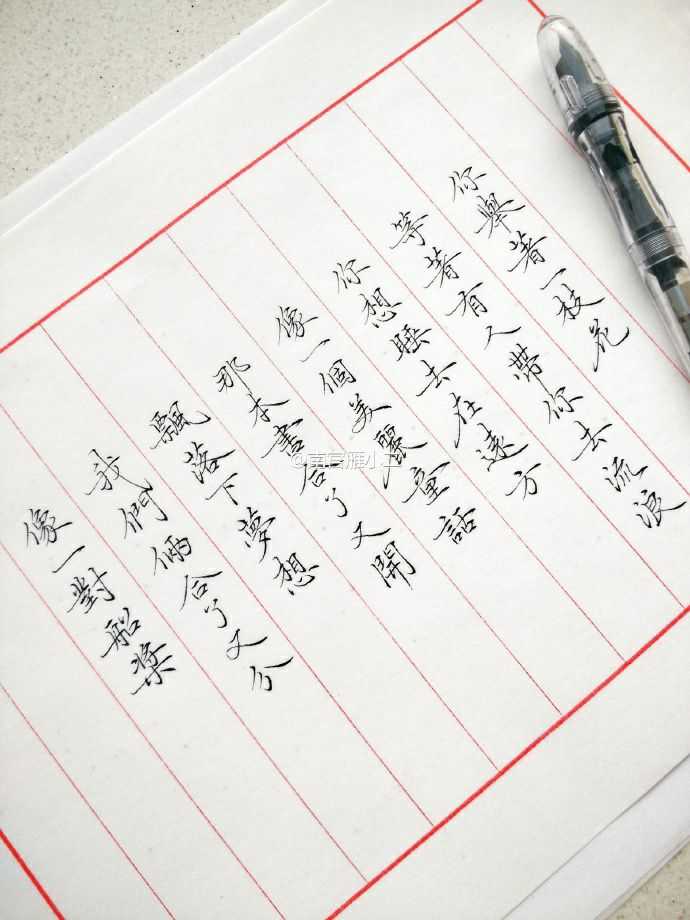 你舉著一枝花
等著有人帶你去流浪
你想睡去在遠方
像一個美麗童話
那本書合了又開
飄落下夢想
我們倆合了又分
像一對船槳